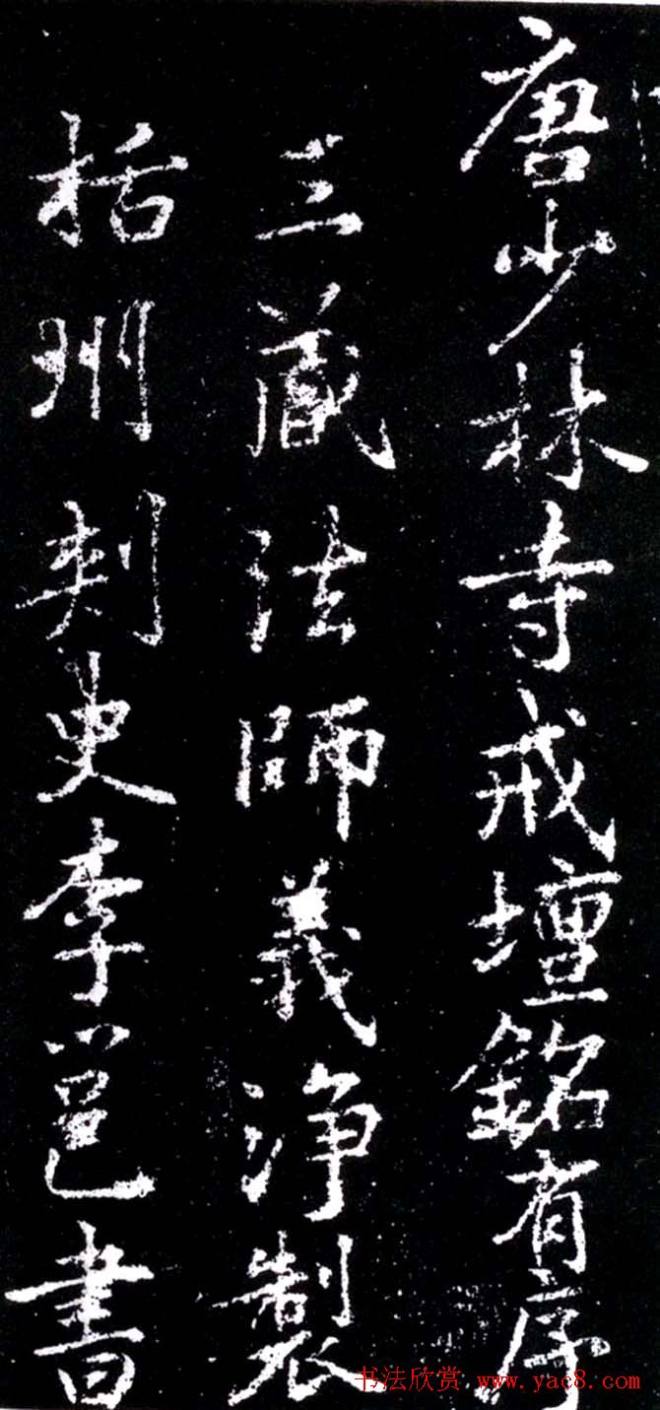 唐少林寺戒壇銘有序
三藏法師義淨製
括州刺史李邕書
书法欣赏 www.yac8.com